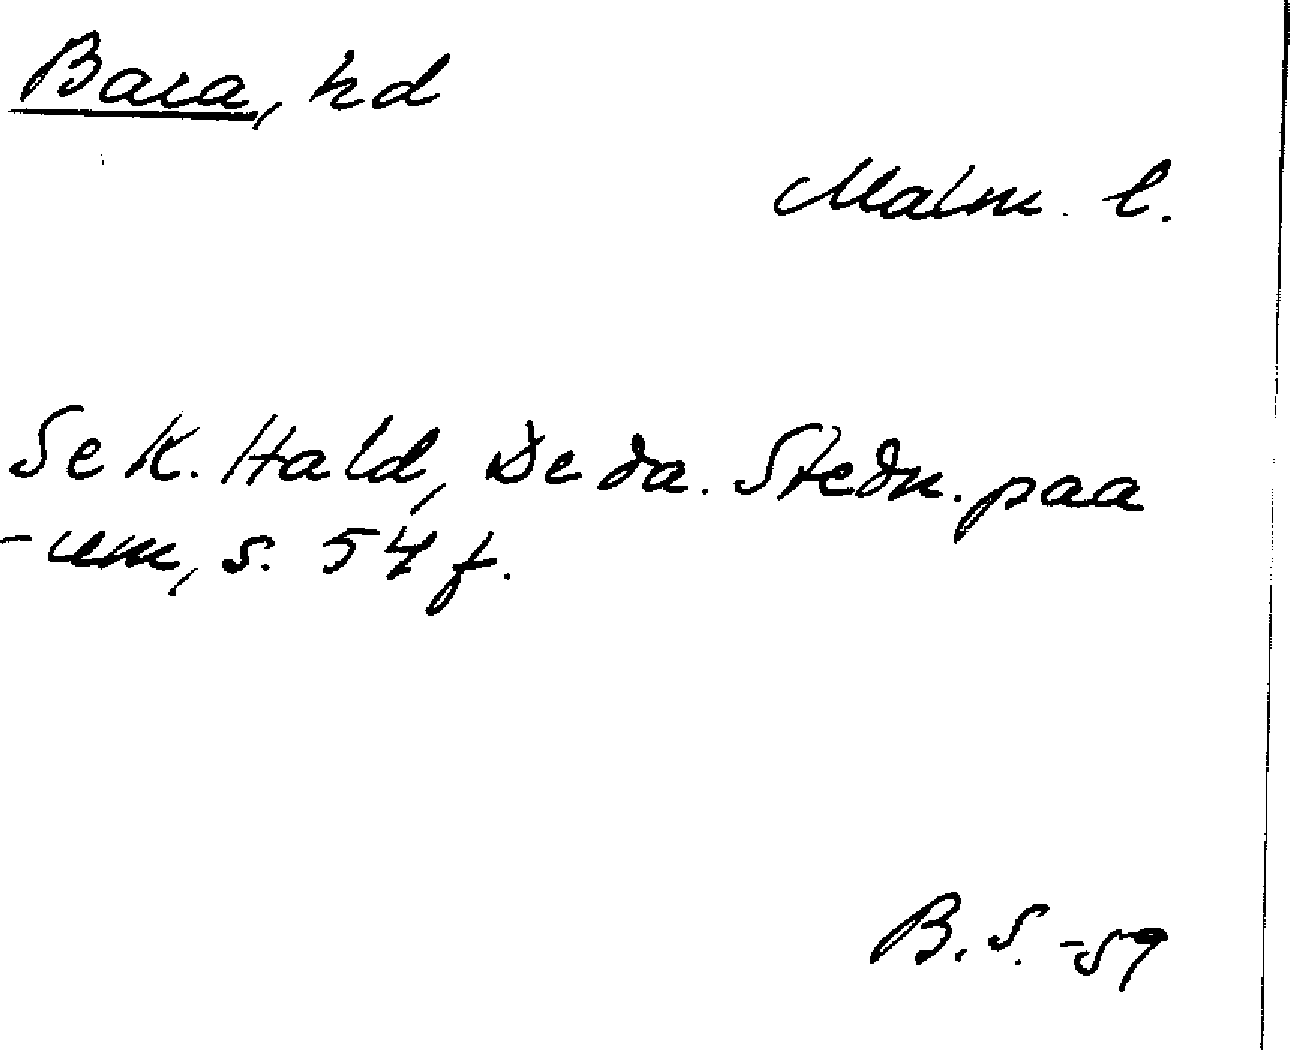 Bara, hd
Malm. l.
Se K. Hald, De da. Stedn. paa
-um, s. 54 f.
B. S. -59